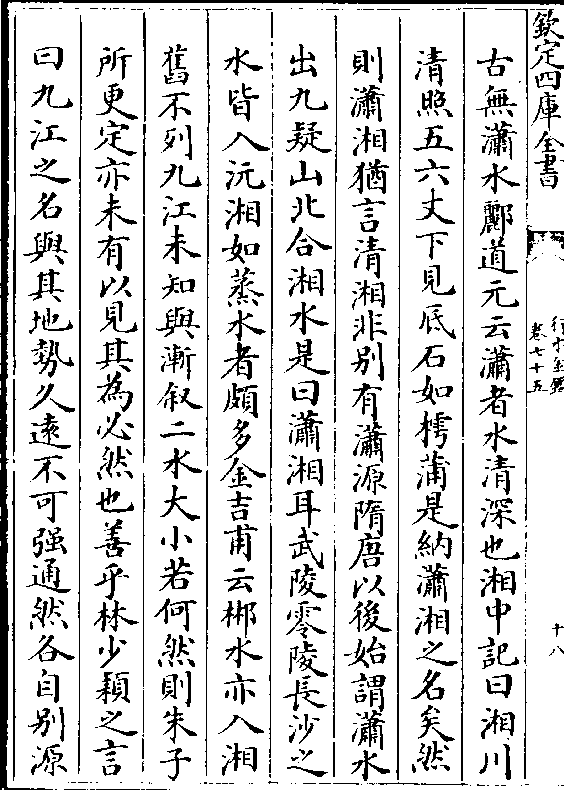 欽定四庫全書
行水金鑑
卷七十五
十八
古無瀟水酈道元云瀟者水清深也湘中記曰湘川
清照五六丈下見底石如樗蒲是納瀟湘之名矣然
則瀟湘猶言清湘非別有瀟源隋唐以後始謂瀟水
出九疑山北合湘水是曰瀟湘耳武陵零陵長沙之
水皆入沅湘如蒸水者頗多金吉甫云郴水亦入湘
舊不列九江未知與漸叙二水大小若何然則朱子
所更定亦未有以見其為必然也善乎林少穎之言
曰九江之名與其地勢久遠不可强通然各自別源